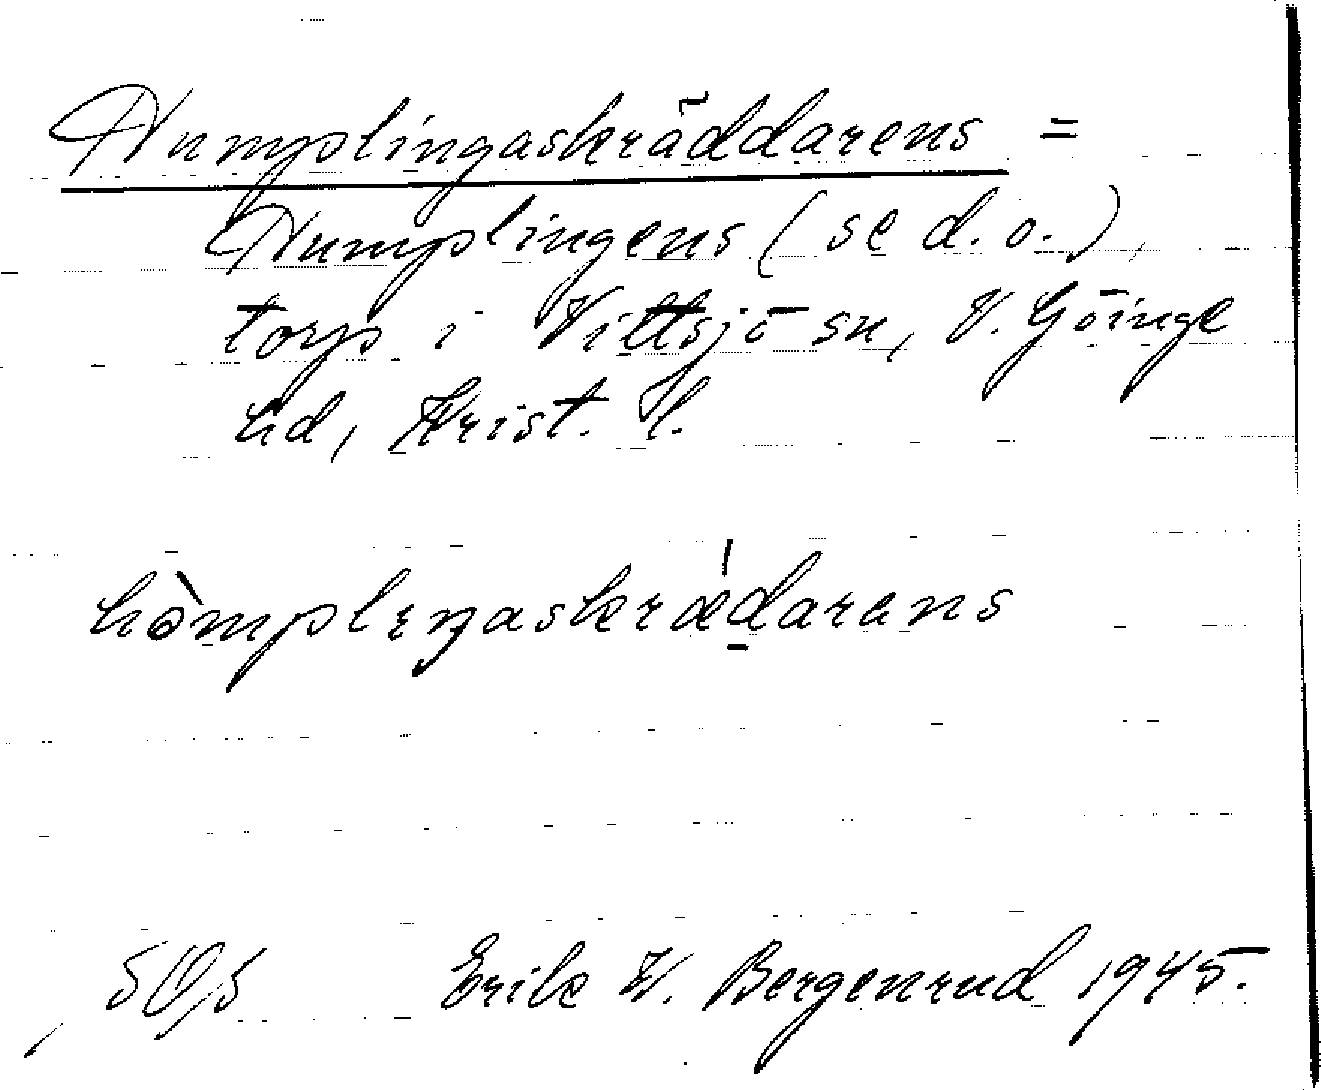 Humplingaskräddarens =
Humplingens (se d.o.),
torp i Vittsjö sn, V. Göinge
hd, Krist. l.
hòmplɪŋaskrǽd̠arans
Erik W. Bergenrud 1945.